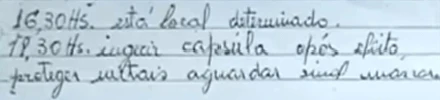 16,30Hs. está local determinado.
18,30Hs. ingerir capsúla após efeito,
proteger metais aguardar sinal mascara